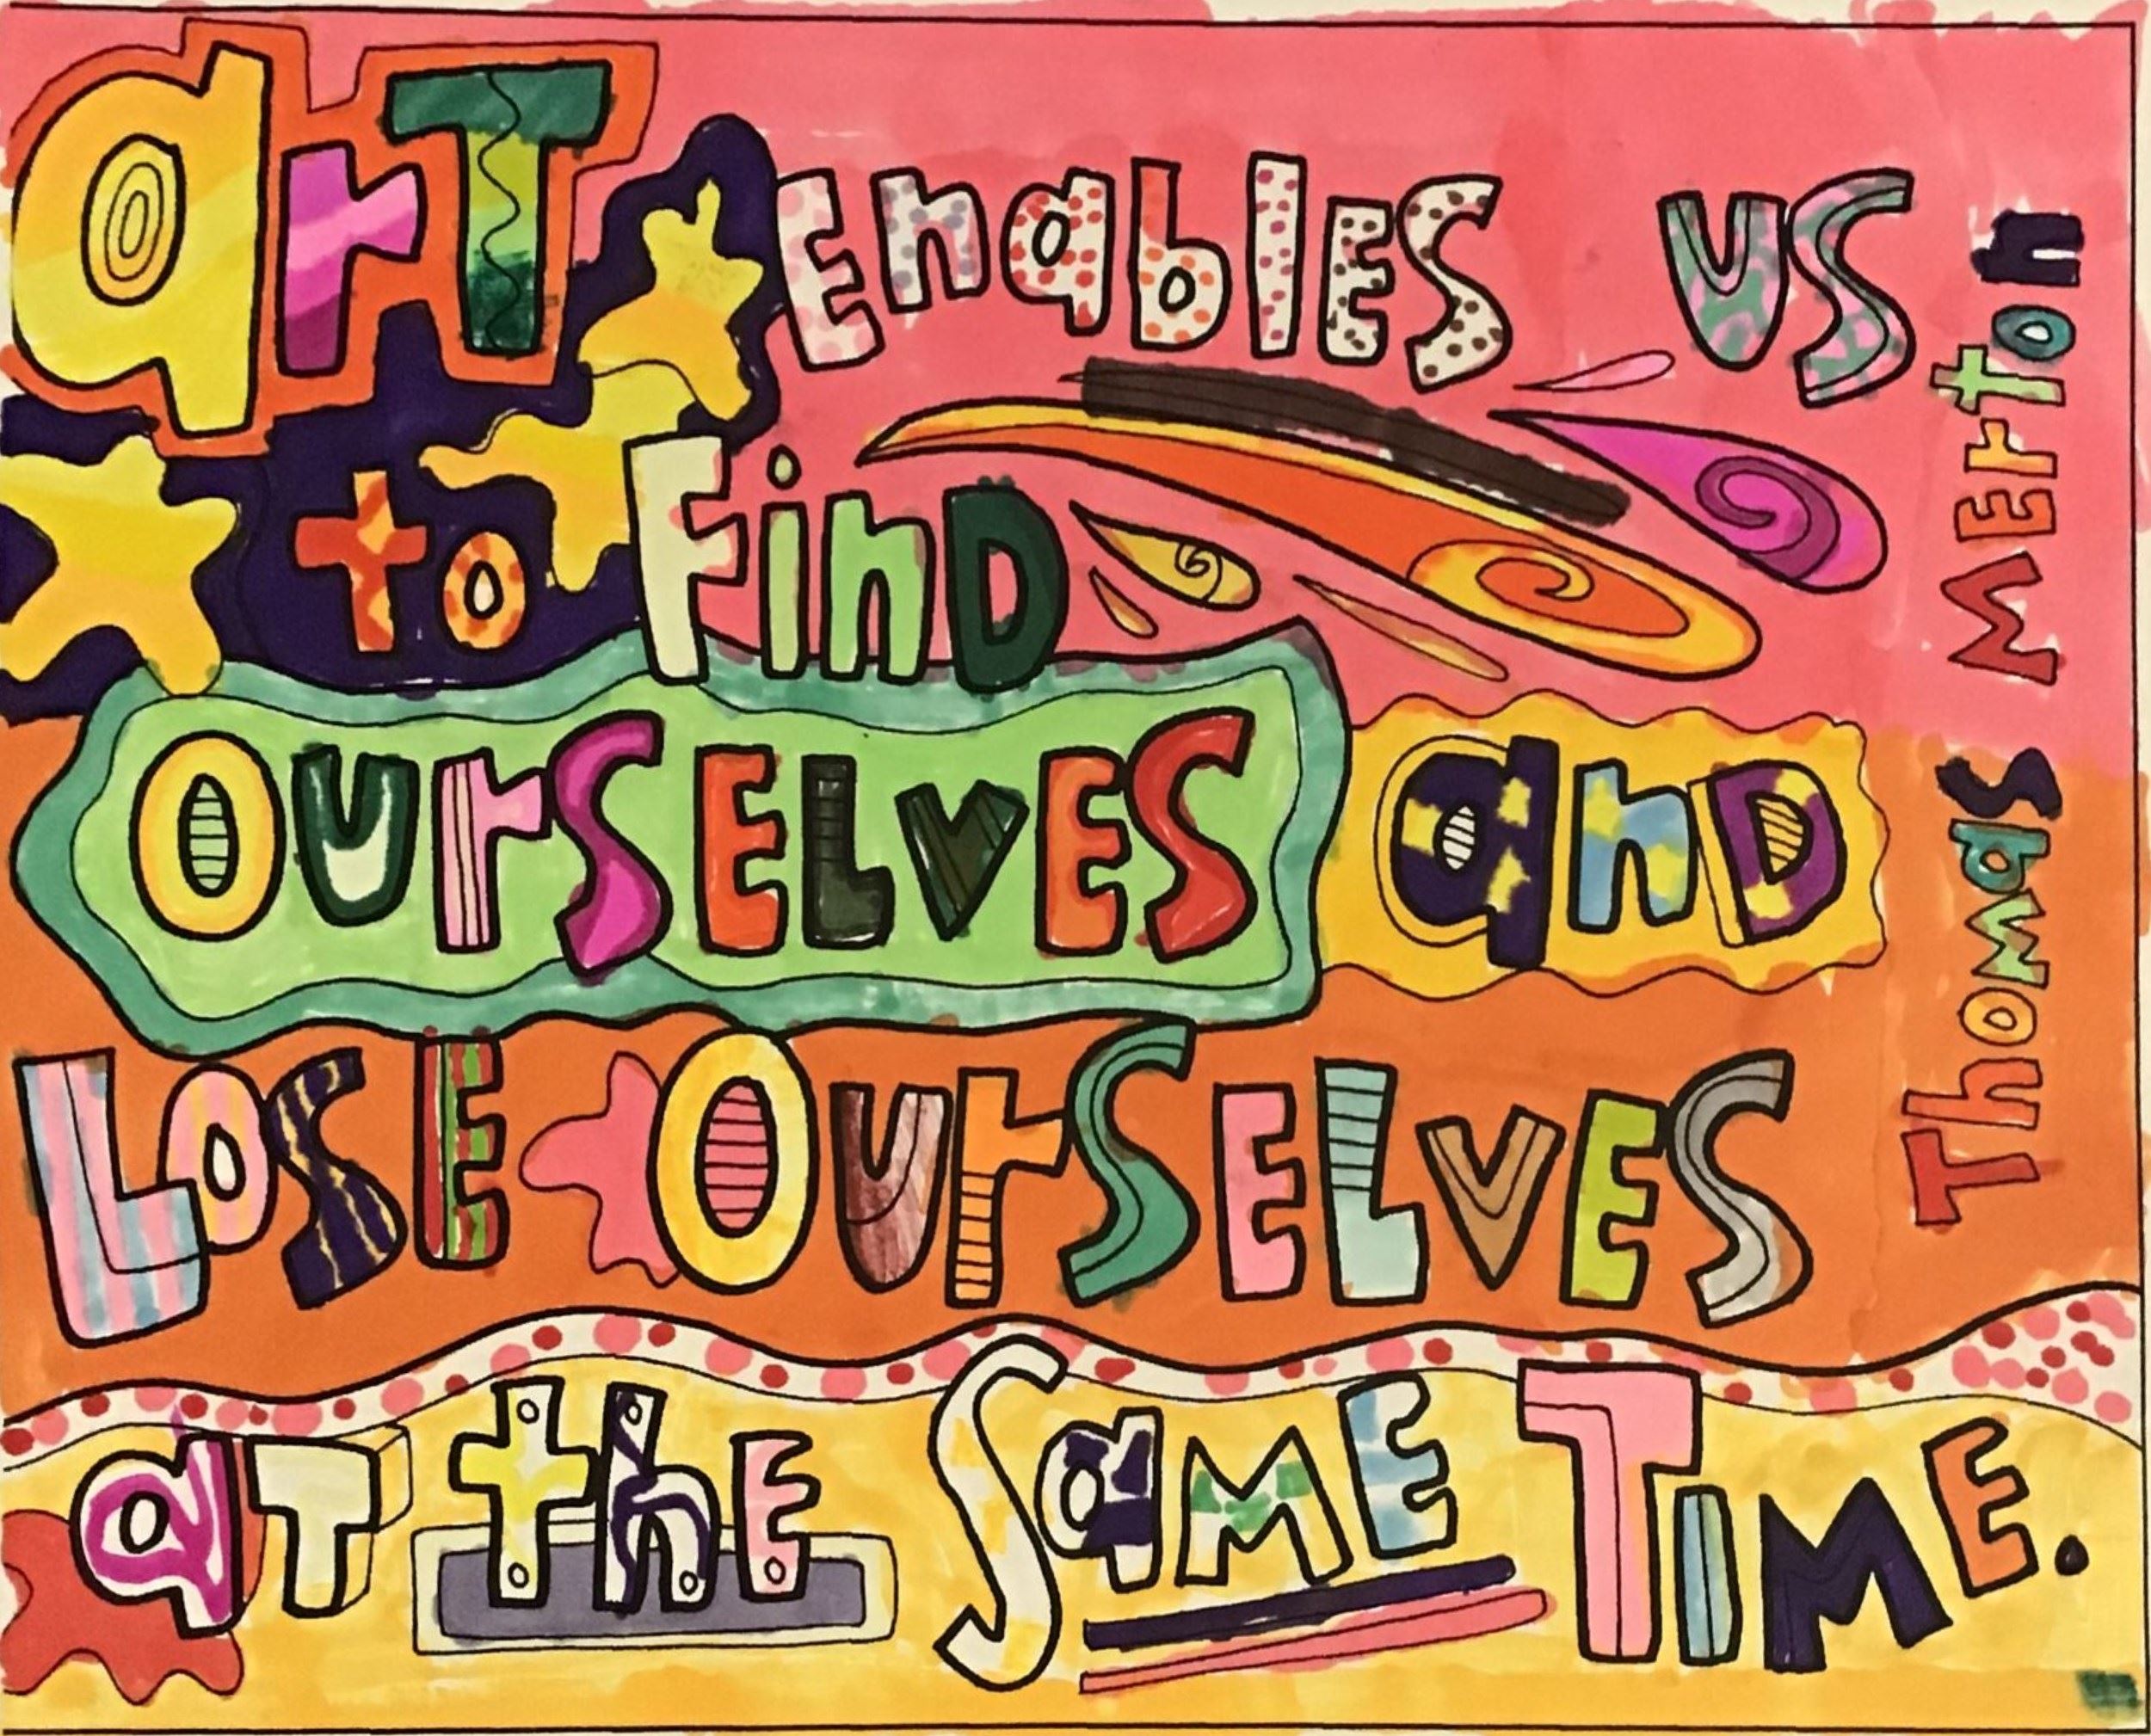 arT EnablES US
to FinD
OUrSELVES anD
LOSE OUrSELVES
aT thE SaME TIME.
Thomas MErton